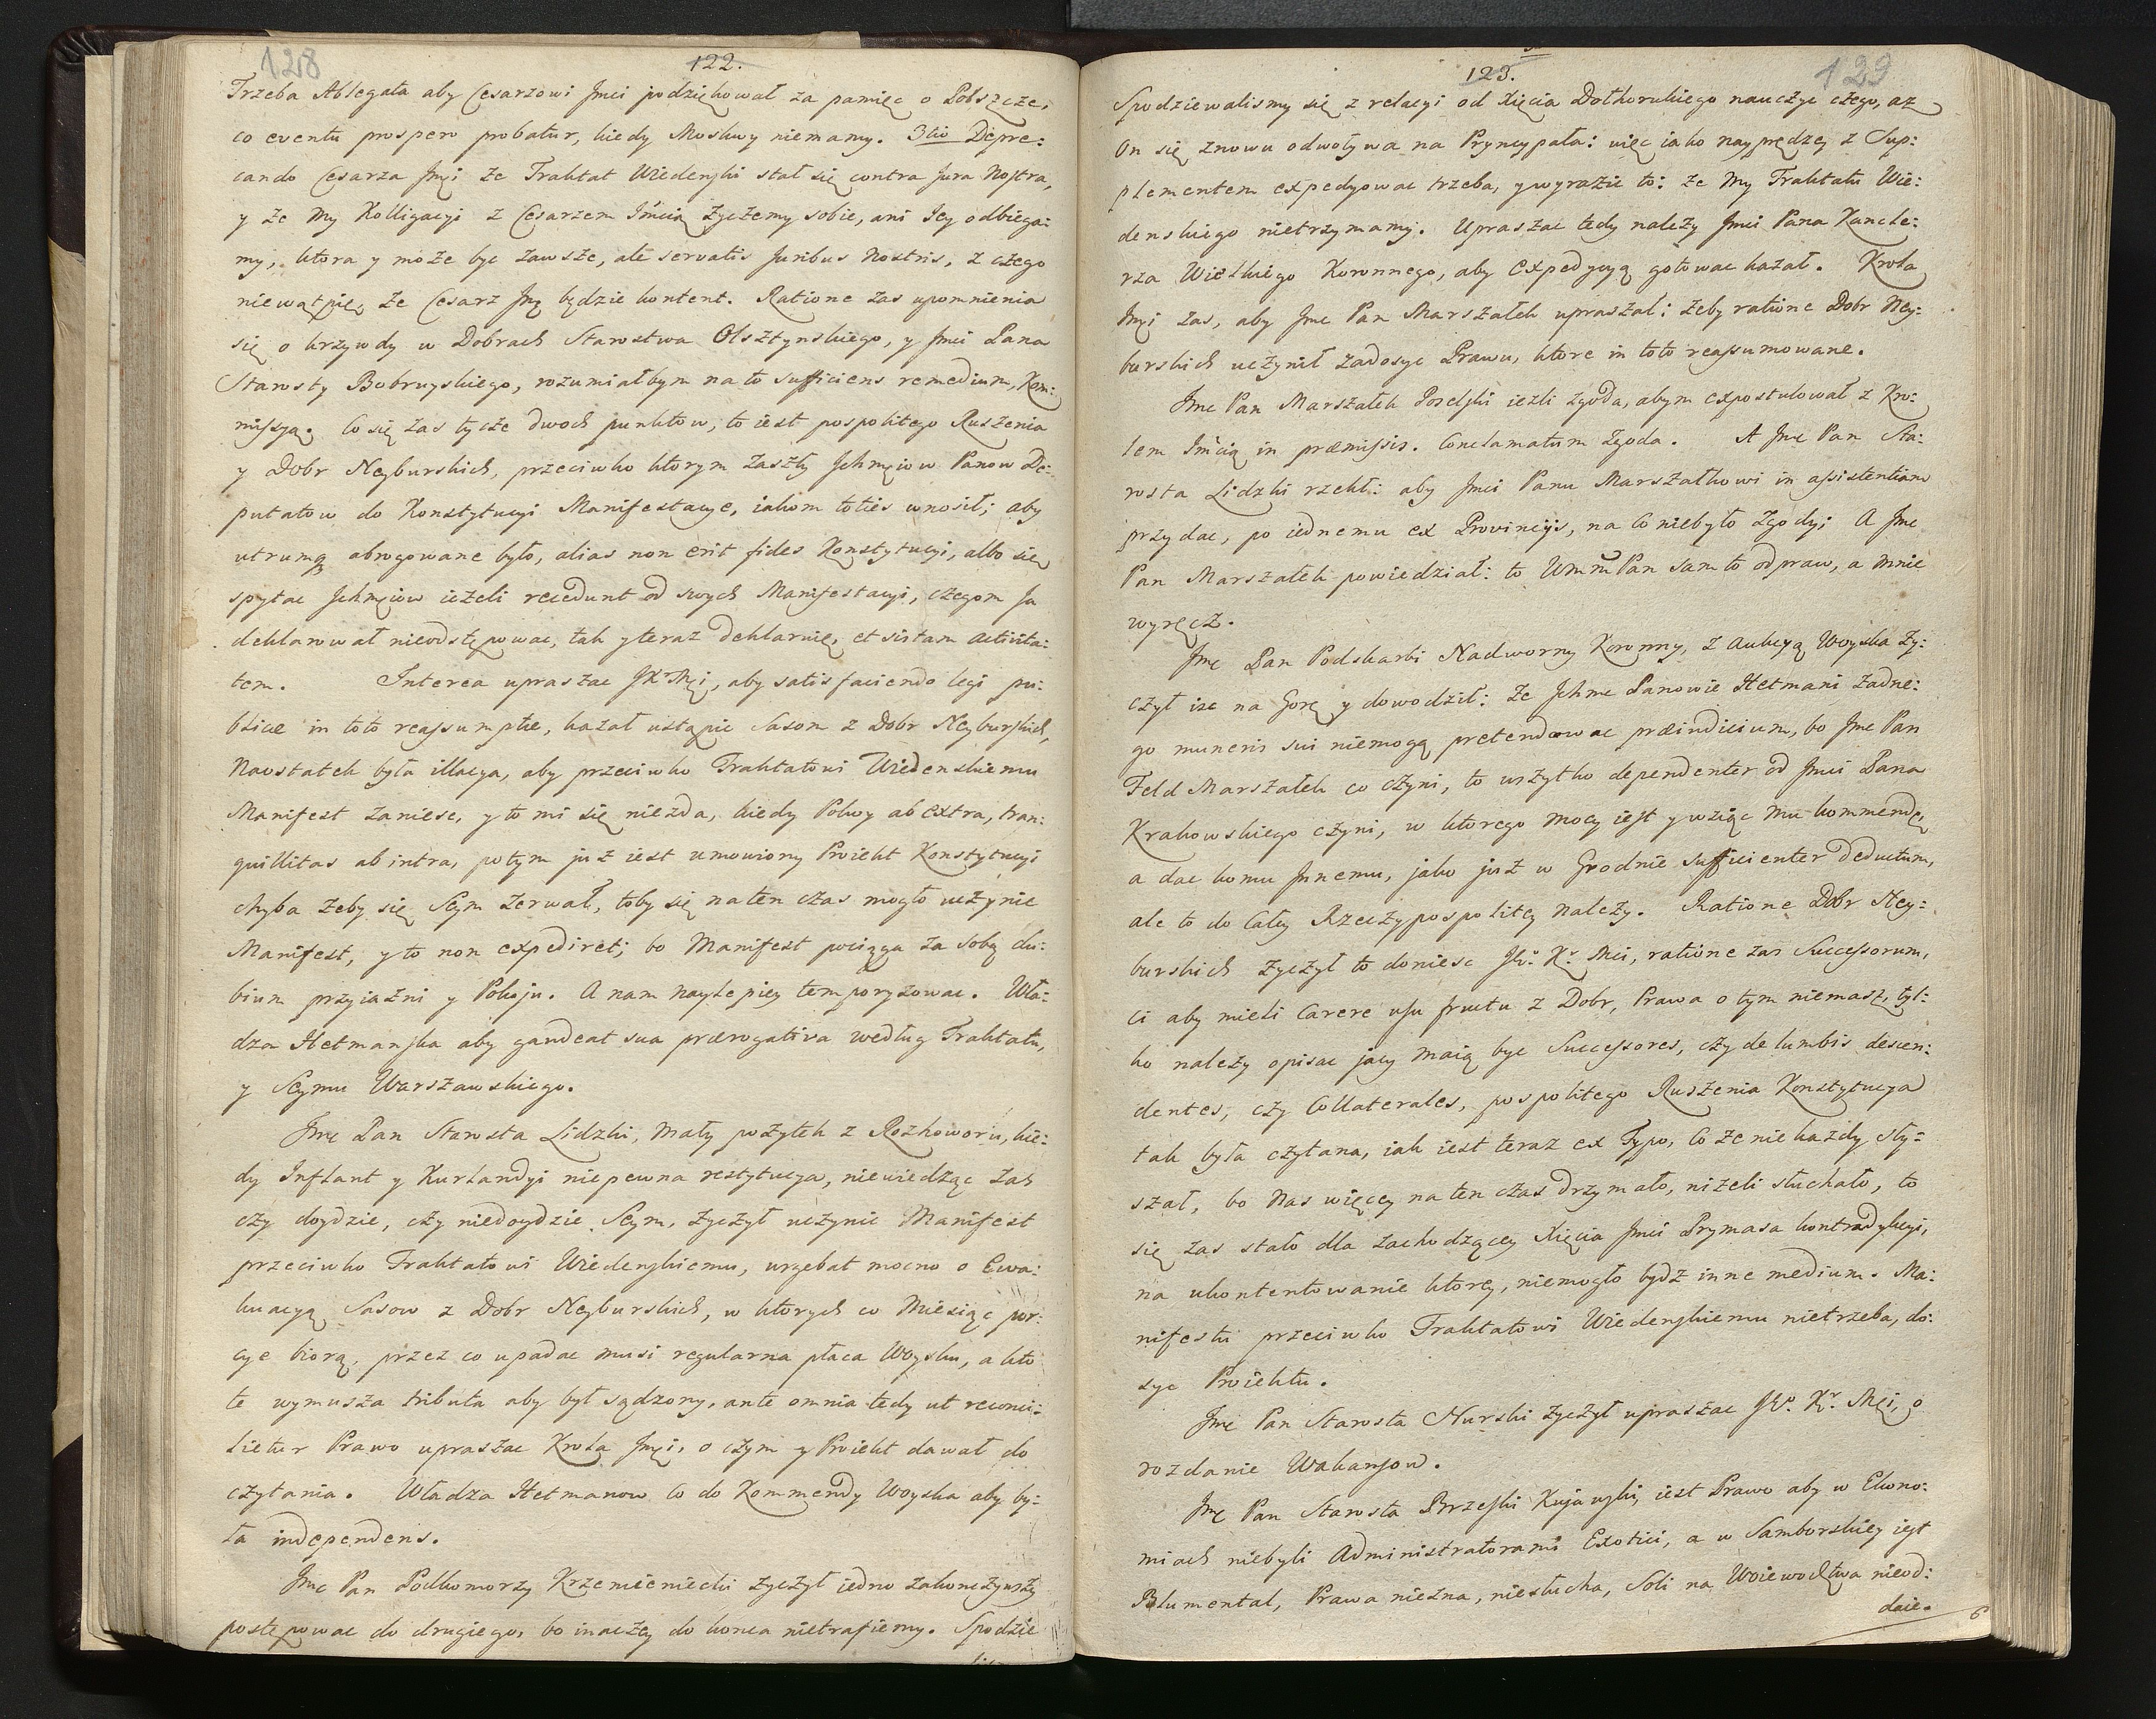 128
122.
Trzeba Ablegata aby Cesarzowi Jmci podziękował za pamięc o Polszcze,
co eventu prospero probatur, kiedy Moskwy niemamy. 3tio Depre:
cando Cesarza Jmci że Traktat Wiedenski stał się contra Jura Nostra,
y że My Kolligacyi z Cesarzem Jmcią życzemy sobie, ani Jey odbiega:
my, ktora y może byc zawsze, ale servatis Juribus Nostris, z czego
niewątpię, że Cesarz Jmć będzie kontent. Ratione zas upomnienia
się o krzywdy w Dobrach Starostwa Olsztynskiego, y Jmci Pana
Starosty Bobruyskiego, rozumiałbym na to sufficiens remedium, Kom:
missyą. Co się zas tycze dwoch punktow, to iest pospolitego Ruszenia
y Dobr Neyburskich, przeciwko ktorym zaszły Jchmciow Panow De:
putatow do Konstytucyi Manifestacye, iakom toties wnosił; aby
utrumq abrogowane było, alias non erit fides Konstytucyi, albo się
spytac Jchmciow ieżeli recedunt od swych Manifestacyi, czegom Ja
deklarował nieodstępowac, tak y teraz deklaruię, et sistam activita:
tem. Interea upraszac JKrMci, aby satisfaciendo legi pu:
blicæ in toto reassumptæ, kazał ustąpic Sasom z Dobr Neyburskich,
Naostatek była illacya, aby przeciwko Traktatowi Wiedenskiemu
Manifest zaniesc, y to mi się niezda, kiedy Pokoy ab extra, tran:
quillitas ab intra, potym już iest umowiony Proiekt Konstytucyi
chyba żeby się Seym zerwał, toby się na ten czas mogło uczynic
Manifest, y to non expediret; bo Manifest pociąga za sobą du:
bium przyiazni y Pokoju. A nam naylepiey temporyzowac. Wła:
dza Hetmanska aby gaudeat sua prærogativa według Traktatu,
y Seymu Warszawskiego.
Jmć Pan Starosta Lidzki, mały pożytek z Rozhoworu, kie:
dy Inflant y Kurlandyi niepewna restytucya, niewiedząc zas
czy doydzie, czy niedoydzie Seym, życzył uczynic Manifest
przeciwko Traktatowi Wiedenskiemu, urgebat mocno o Ewa:
kuacyą Sasow z Dobr Neyburskich, w ktorych co Miesiąc por:
cye biorą, przez co upadac musi regularna płaca Woysku, a kto
te wymusza tributa aby był sądzony, ante omnia tedy ut reconci:
lietur Prawo upraszac Krola Jmci, o czym y Proiekt dawał do
czytania. Władza Hetmanow co do Kommendy Woyska aby by:
ła independens.
Jmć Pan Podkomorzy Krzemieniecki życzył iedno zakonczywszy
postępowac do drugiego, bo inaczey do konca nietrafiemy. Spodzie
129
123.
Spodziewalismy się z relacyi od Xięcia Dołhorukiego nauczyc czego, aż
On się znowu odwoływa na Pryncypała: więc iako nayprędzey z Sup:
plementem expedyowac trzeba, y wyrazic to: że My Traktatu Wie:
denskiego nietrzymamy. Upraszac tedy należy Jmci Pana Kancle:
rza Wielkiego Koronnego, aby Expedycyą gotowac kazał. Krola
Jmci zas, aby Jmć Pan Marszałek upraszał: żeby ratione Dobr Ney:
burskich uczynił zadosyc Prawu, ktore in toto reassumowane.
Jmć Pan Marszałek Poselski iezli zgoda, abym expostulował z Kro:
lem Jmcią in præmissis. Conclamatum zgoda. A Jmć Pan Sta:
rosta Lidzki rzekł: aby Jmci Panu Marszałkowi in assistentiam
przydac, po iednemu ex Provinciis, na co niebyło zgody; A Jmć
Pan Marszałek powiedział: to Wmm Pan sam to odpraw, a mnie
wyręcz.
Jmć Pan Podskarbi Nadworny Koronny, z aukcyą Woyska ży:
czył isc na Gorę y dowodził: że Jchmć Panowie Hetmani żadne:
go muneris sui niemogą pretendowac præiudicium, bo Jmć Pan
Feld Marszałek co czyni, to wszytko dependenter od Jmci Pana
Krakowskiego czyni, w ktorego mocy iest y wziąc mu kommendę,
a dac komu Jnnemu, jako już w Grodnie sufficienter deductum,
ale to do Całey Rzeczypospolitey należy. Ratione Dobr Ney:
burskich życzył to doniesc JW. Kr. Mci, ratione zas Successorum,
ci aby mieli Carere usu fructu z Dobr, Prawa o tym niemasz, tyl:
ko należy opisac jacy maią byc Successores, czy de lumbis descen:
dentes, czy Collaterales, pospolitego Ruszenia Konstytucya
tak była czytana, iak iest teraz ex Typo, co że nie każdy sły:
szał, bo Nas więcey na ten czas drzymało, niżeli słuchało, to
się zas stało dla zachodzącey Xięcia Jmci Prymasa kontradykcyi,
na ukontentowanie ktorey, niemogło bydz inne medium. Ma:
nifestu przeciwko Traktatowi Wiedenskiemu nietrzeba, do:
syc Proiektu.
Jmć Pan Starosta Nurski życzył upraszac JW. Kr. Mci, o
rozdanie Wakansow.
Jmć Pan Starosta Brzeski Kujawski, iest Prawo aby w Ekono:
miach niebyli Administratorami Exotici, a w Samborskiey iest
Blumental, Prawa niezna, niesłucha, Soli na Woiewodztwa nieod:
daie.